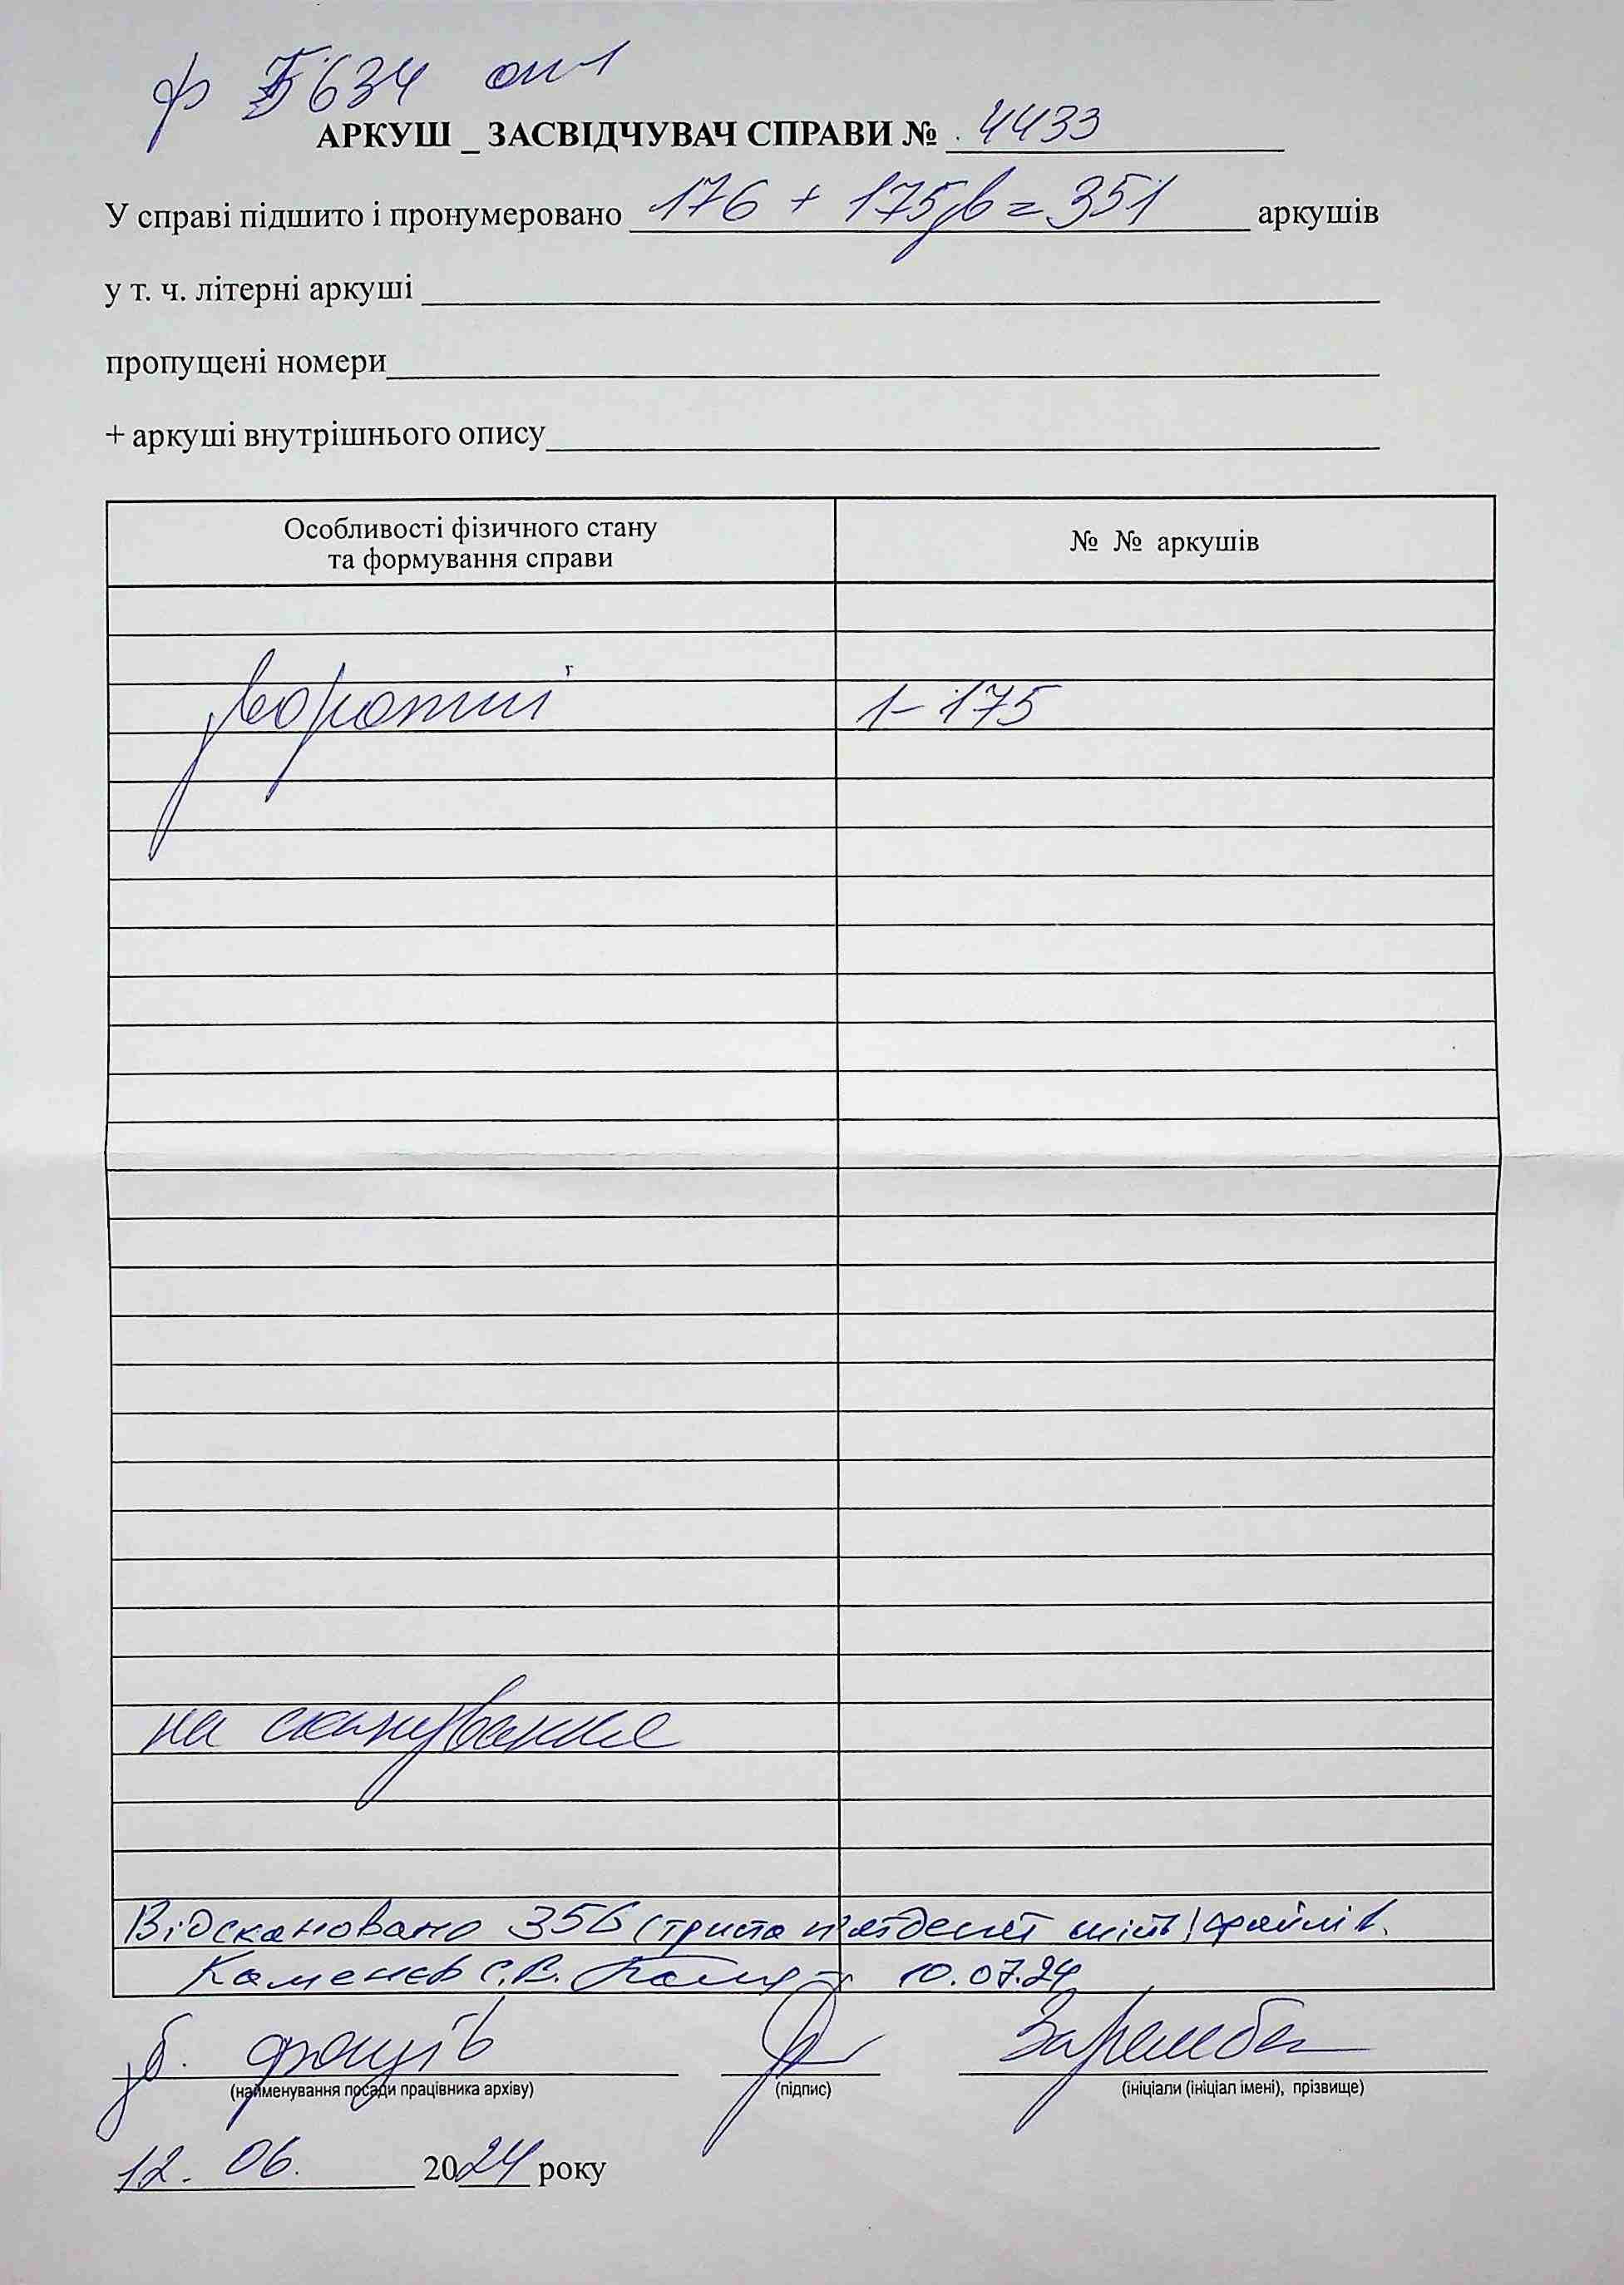 ф 5634 оп 1
АРКУШ _ ЗАСВІДЧУВАЧ СПРАВИ № 4433
У справі підшито і пронумеровано 176 + 175зв = 351 аркушів
у т. ч. літерні аркуші
пропущені номери
+ аркуші внутрішнього опису
Особливості фізичного стану та формування справи
№ № аркушів
звороти 1-175
на сканування
Відскановано 356 (триста п'ятдесят шість) файлів.
Каменєв С.В. 10.07.24
зб. фондів Заремба
(найменування посади працівника архіву) (підпис) (ініціали (ініціал імені), прізвище)
12. 06. 2024 року